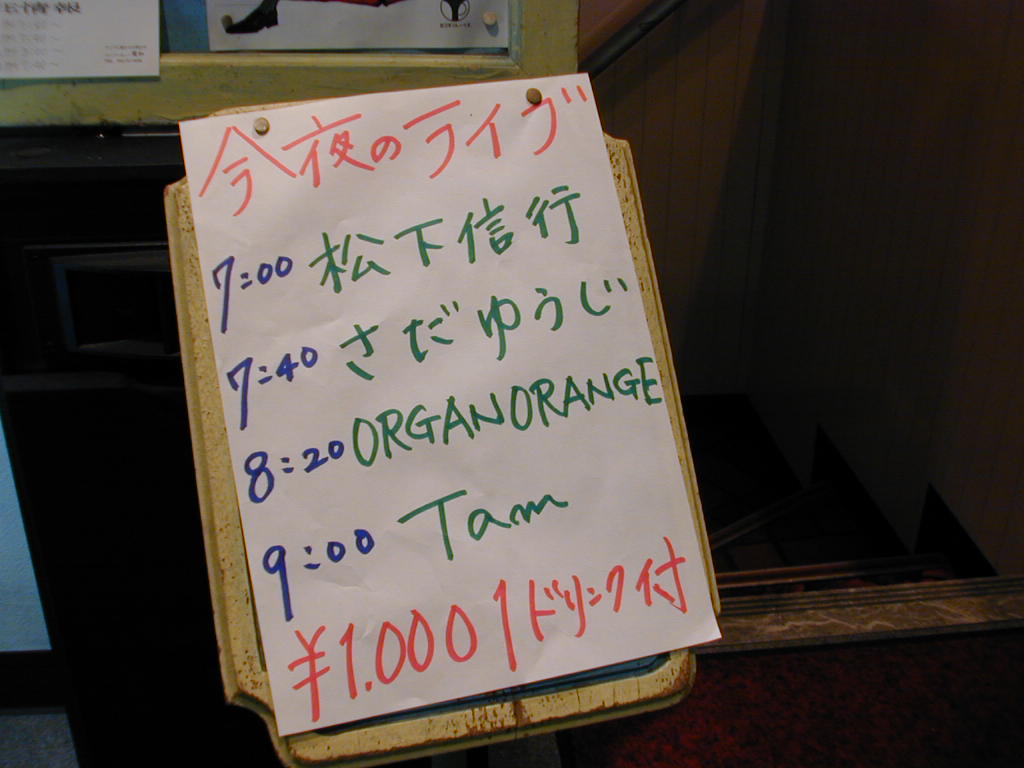 情報
今夜のライブ
7:00 松下信行
7:40 さだゆうじ
8:20 ORGANORANGE
9:00 Tam
¥1.000 1ドリンク付